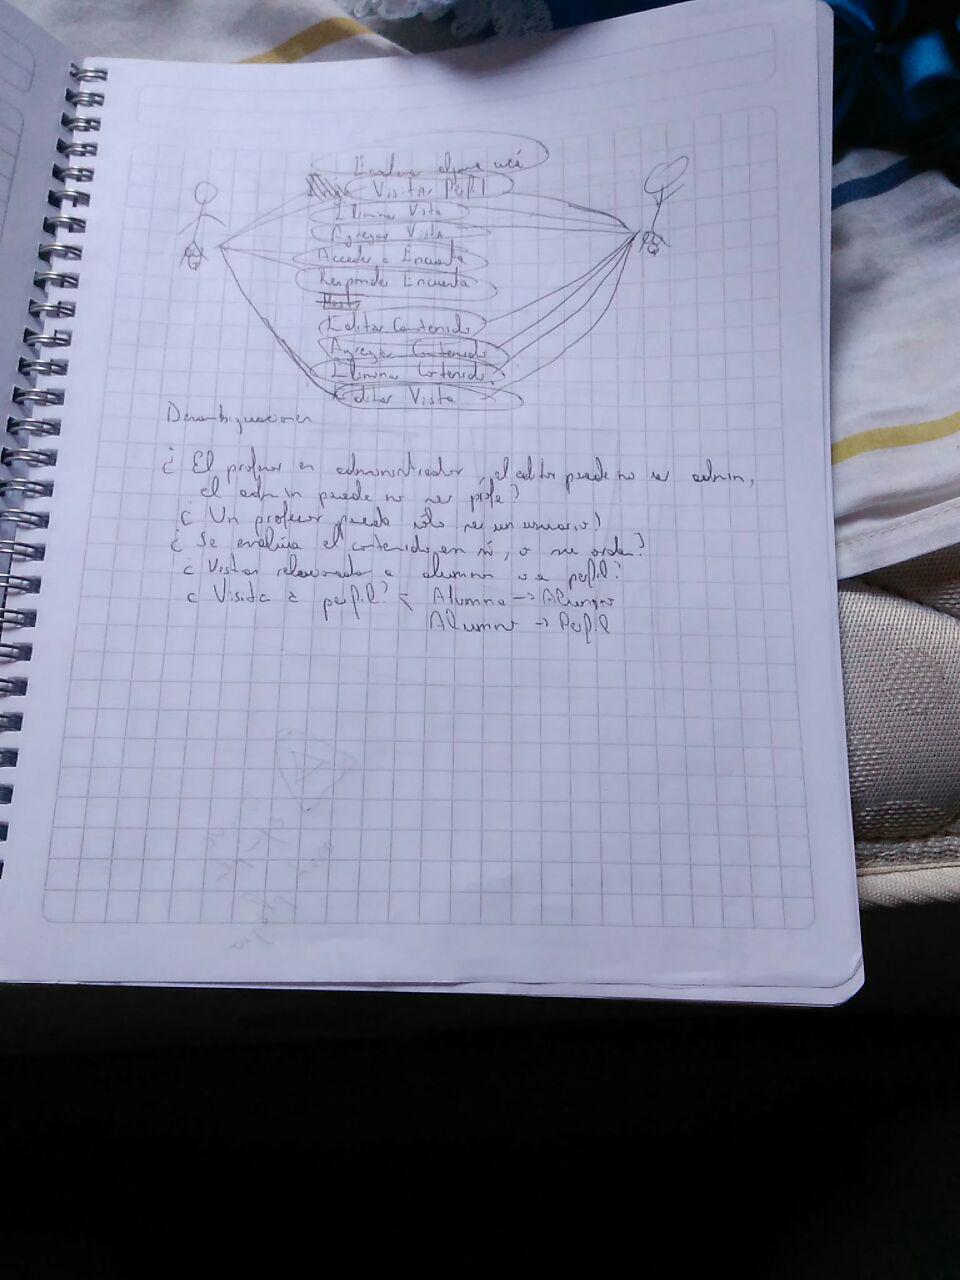 Visitar Perfil
Elimina Vista
Agregar Vista
Acceder a Encuesta
Responder Encuesta
Editar Contenido
Agregar Contenido
Elimina Contenido
Editar Vista
Desambiguaciones
¿ El profesor es administrador, el editor puede no ser admin,
el admin puede no ser profe?
¿ Un profesor puede sólo ser un usuario?
¿ Se evalúa el contenido en sí, o su orden?
¿ Vistas relacionadas a alumno o a perfil?
¿ Visita a perfil? < Alumno -> Alumno
Alumno -> Perfil